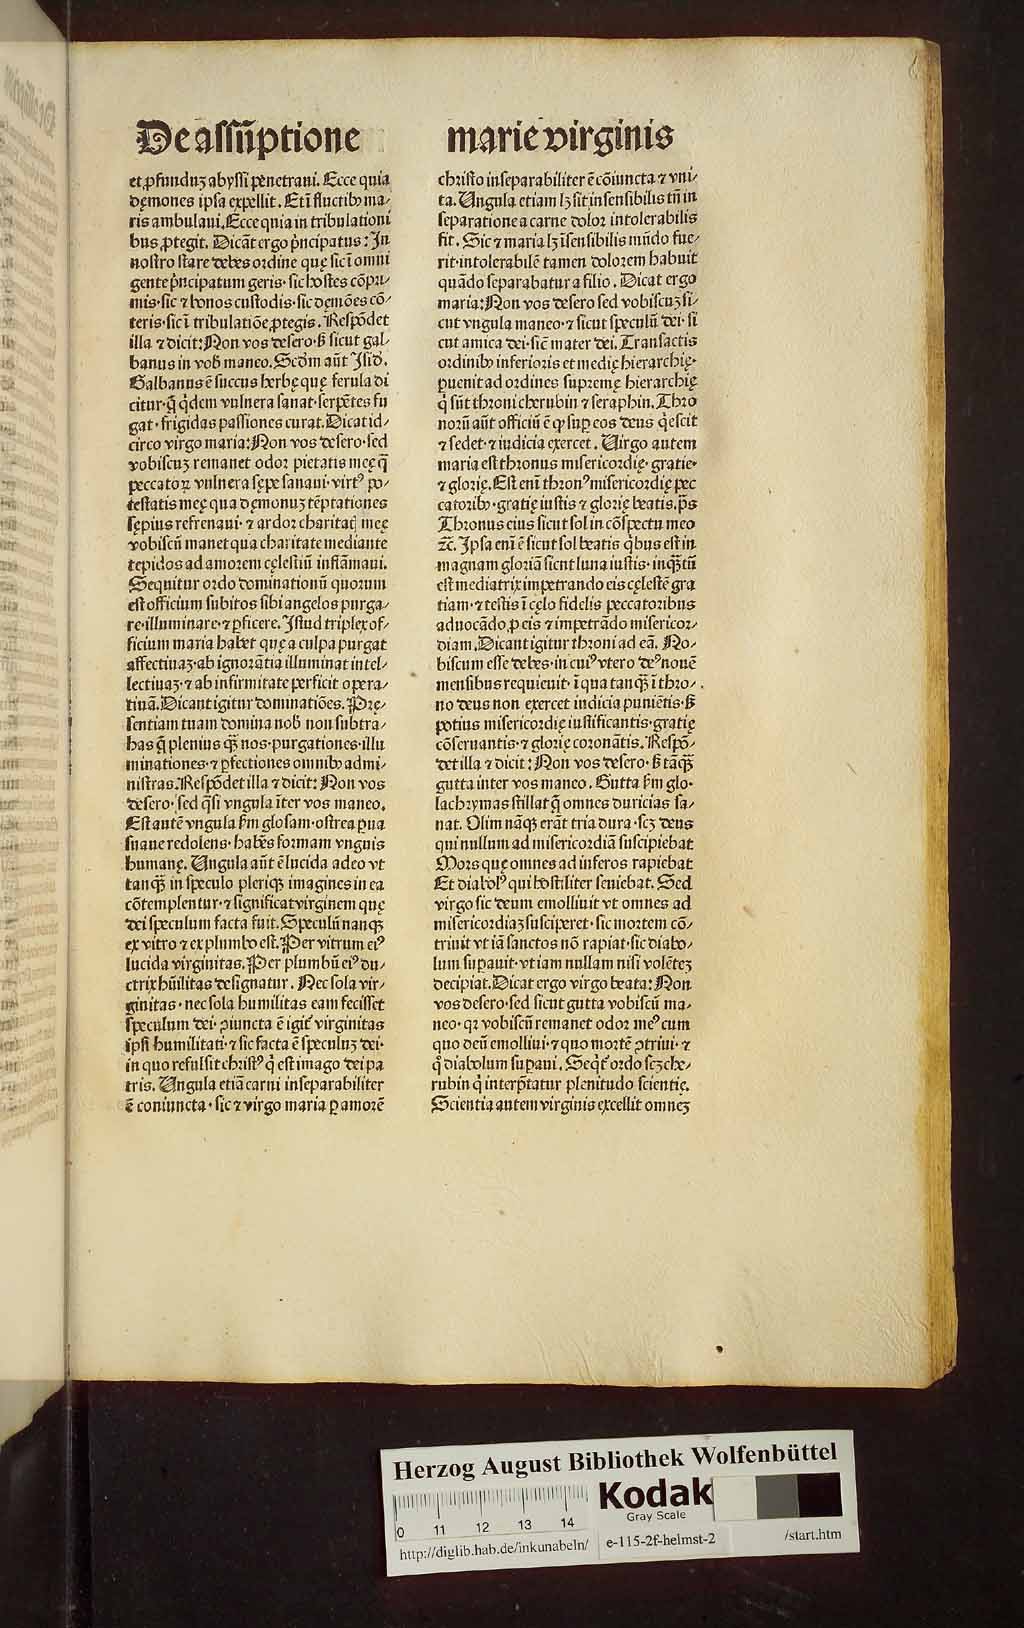 De assūptione
marie virginis
et ꝓfunduʒ abyssi penetraui. Ecce quia
dęmones ipsa expellit. Et ī fluctibꝫ ma⸗
ris ambulaui. Ecce quia in tribulationi
bus ꝓtegit. Dicāt ergo pͥncipatus: In
nostro stare debes ordine quę sic ī omni
gente pͥncipatum geris· sic hostes cōpri⸗
mis· sic ⁊ bonos custodis· sic dęmōes cō⸗
teris· sic ī tribulatiōe ꝓtegis. Respōdet
illa ⁊ dicit: Non vos desero· ß sicut gal⸗
banus in vob̄ maneo. Scd̄m aūt Isid̄.
Galbanus ē succus herbę quę ferula di
citur· q̄ qͥdem vulnera sanat· serpētes fu
gat· frigidas passiones curat. Dicat id⸗
circo virgo maria: Non vos desero· sed
vobiscuʒ remanet odor pietatis meę q̄
peccatoꝝ vulnera sępe sanaui· virtꝰ po⸗
testatis meę qua dęmonuʒ tēptationes
sępius refrenaui· ⁊ ardor charitatꝭ meę
vobiscū manet qua charitate mediante
tepidos ad amorem cęlestiū inflāmaui.
Sequitur ordo dominationū quorum
est officium subitos sibi angelos purga⸗
re· illuminare· ⁊ ꝑficere. Istud triplex of⸗
ficium maria habet quę a culpa purgat
affectiuaʒ· ab ignorātia illuminat intel⸗
lectiuaʒ· ⁊ ab infirmitate perficit opera⸗
tiuā. Dicant igitur dominatiōes. Prę⸗
sentiam tuam domina nob̄ non subtra⸗
has q̄ plenius qʒ̄ nos· purgationes· illu
minationes· ⁊ ꝑfectiones omnibꝫ admi⸗
nistras. Respōdet illa ⁊ dicit: Non vos
desero· sed qͣsi vngula īter vos maneo.
Est autē vngula ẜm glosam· ostrea ꝑua
suaue redolens· habēs formam vnguis
humanę. Ungula aūt ē lucida adeo vt
tanqʒ̄ in speculo pleriqꝫ imagines in ea
cōtemplentur· ⁊ significat virginem quę
dei speculum facta fuit. Speculū nanqꝫ
ex vitro ⁊ ex plumbo est. Per vitrum eiꝰ
lucida virginitas. Per plumbū eiꝰ du⸗
ctrix hūilitas designatur. Nec sola vir⸗
ginitas· nec sola humilitas eam fecisset
speculum dei· ꝯiuncta ē igit᷑ virginitas
ipsi humilitati· ⁊ sic facta ē speculuʒ dei·
in quo refulsit christꝰ qͥ est imago dei pa
tris. Ungula etiā carni inseparabiliter
ē coniuncta· sic ⁊ virgo maria ꝑ amorē
christo inseparabiliter ē cōiuncta ⁊ vni⸗
ta. Ungula etiam lꝫ sit insensibilis tn̄ in
separatione a carne dolor intolerabilis
fit. Sic ⁊ maria lꝫ īsensibilis mūdo fue⸗
rit· intolerabilē tamen dolorem habuit
quādo separabatur a filio. Dicat ergo
maria: Non vos desero sed vobiscuʒ si⸗
cut vngula maneo· ⁊ sicut speculū dei· si
cut amica dei· sic̄ mater dei. Transactis
ordinibꝫ inferioris et medię hierarchię·
ꝑuenit ad ordines supremę hierarchię
qͥ sūt throni cherubin ⁊ seraphin. Thro
norū aūt officiū ē ꝙ suꝑ eos deus qͥescit
⁊ sedet· ⁊ iudicia exercet. Virgo autem
maria est thronus misericordię· gratie·
⁊ glorię. Est enī thronꝰ misericordię pec
catoribꝫ· gratię iustis ⁊ glorię beatis. p̄s
Thronus eius sicut sol in cōspectu meo
⁊c̄. Ipsa enī ē sicut sol beatis qͥbus est in
magnam gloriā sicut luna iustis· inqʒ̄tū
est mediatrix impetrando eis cęlestē gra
tiam· ⁊ testis ī cęlo fidelis peccatoribus
aduocādo ꝓ eis ⁊ impetrādo misericor⸗
diam. Dicant igitur throni ad eā. No⸗
biscum esse debes· in cuiꝰ vtero deꝰ nouē
mensibus requieuit· ī qua tanqʒ̄ ī thro⸗
no deus non exercet iudicia puniētis· ß
potius misericordię iustificantis· gratię
cōseruantis· ⁊ glorię coronātis. Respō⸗
det illa ⁊ dicit: Non vos desero· ß tāqʒ̄
gutta inter vos maneo. Gutta ẜm glo·
lachrymas stillat q̄ omnes duricias sa⸗
nat. Olim nāqꝫ erāt tria dura· scꝫ deus
qui nullum ad misericordiā suscipiebat
Mors quę omnes ad inferos rapiebat
Et diabolꝰ qui hostiliter seuiebat. Sed
virgo sic deum emolliuit vt omnes ad
misericordiaʒ susciperet· sic mortem cō⸗
triuit vt iā sanctos nō rapiat· sic diabo⸗
lum suꝑauit· vt iam nullam nisi volēteʒ
decipiat. Dicat ergo virgo beata: Non
vos desero· sed sicut gutta vobiscū ma⸗
neo· qꝛ vobiscū remanet odor meꝰ cum
quo deū emolliui· ⁊ quo mortē ꝯtriui· ⁊
qͦ diabolum suꝑaui. Seqͥt᷑ ordo scꝫ che⸗
rubin qͥ interp̄tatur plenitudo scientię.
Scientia autem virginis excellit omneʒ
Herzog August Bibliothek Wolfenbüttel
Kodak
Gray Scale
0 11 12 13 14
http://diglib.hab.de/inkunabeln/ e-115-2f-helmst-2 /start.htm